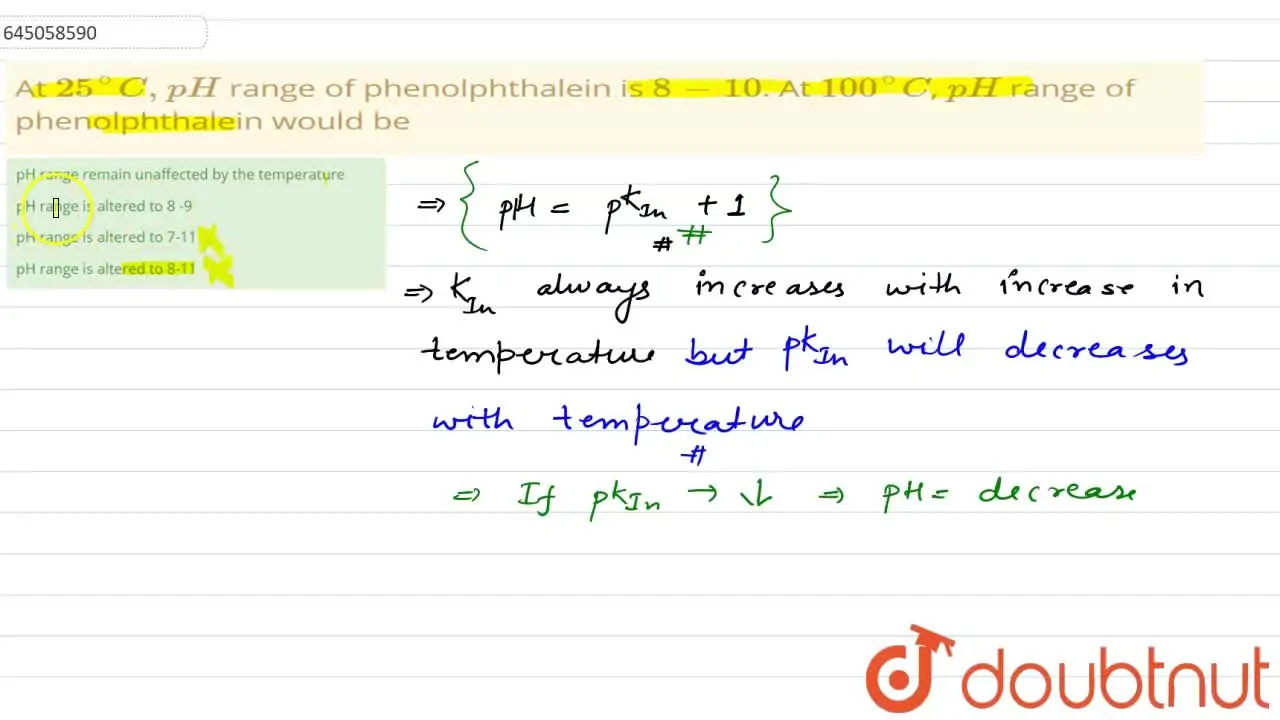 645058590
At 25°C, pH range of phenolphthalein is 8 − 10. At 100°C, pH range of
phenolphthalein would be
pH range remain unaffected by the temperature
pH range is altered to 8 -9
pH range is altered to 7-11
pH range is altered to 8-11
⇒ { pH = pK_In + 1 }
# #
⇒ K_In always increases with increase in
temperature but pK_In will decreases
with temperature
#
⇒ If pK_In → ↓ ⇒ pH = decrease
doubtnut